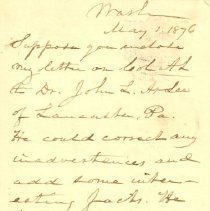 Wash
May 1, 1876
Suppose you inclose
my letter on tooth
to Dr. John L. Atlee
of Lancaster, Pa.
He could correct any
inadvertences and
add some inter-
esting facts. He